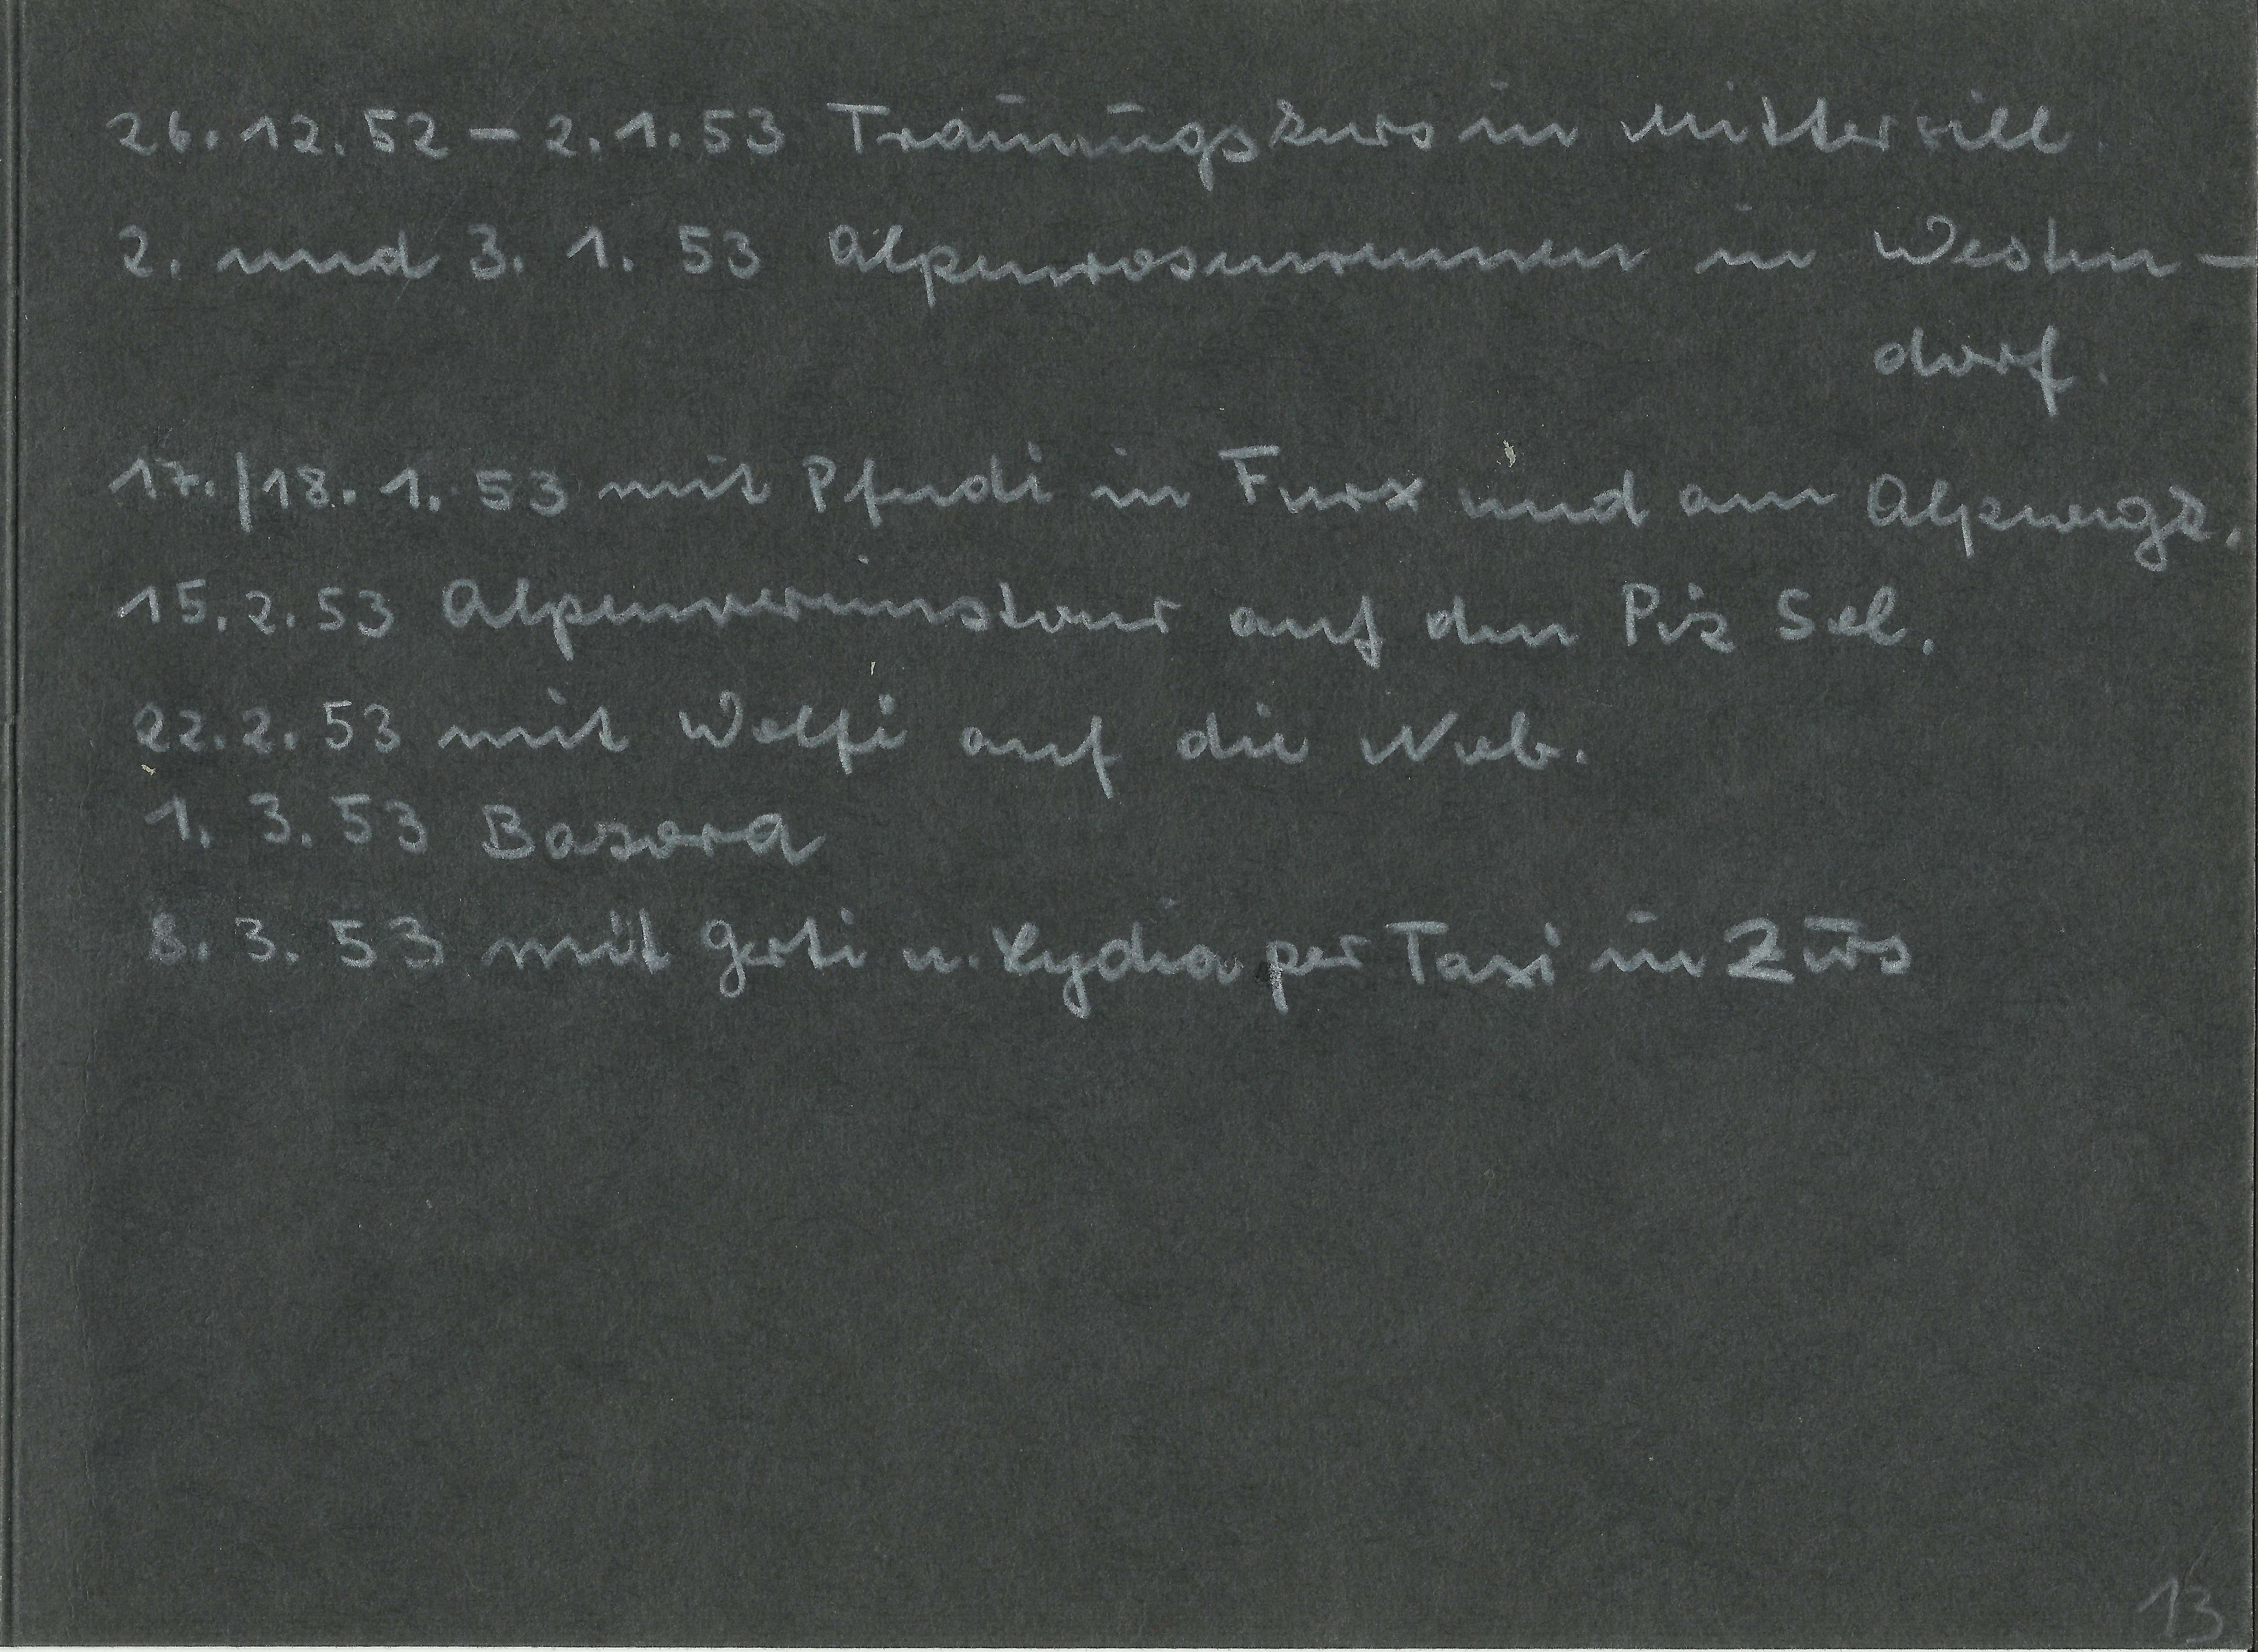 26.12.52 – 2.1.53 Trainingskurs in Mittersill.
2. und 3. 1. 53 Alpenrosenrennen in Westen-
dorf.
17./18. 1. 53 mit Pfudi in Furx und am Alpwegk.
15.2.53 Alpenvereinstour auf den Piz Sel.
22.2.53 mit Wolfi auf die Nob.
1. 3. 53 Bazora
8. 3. 53 mit Gerti u. Lydia per Taxi in Zürs
13